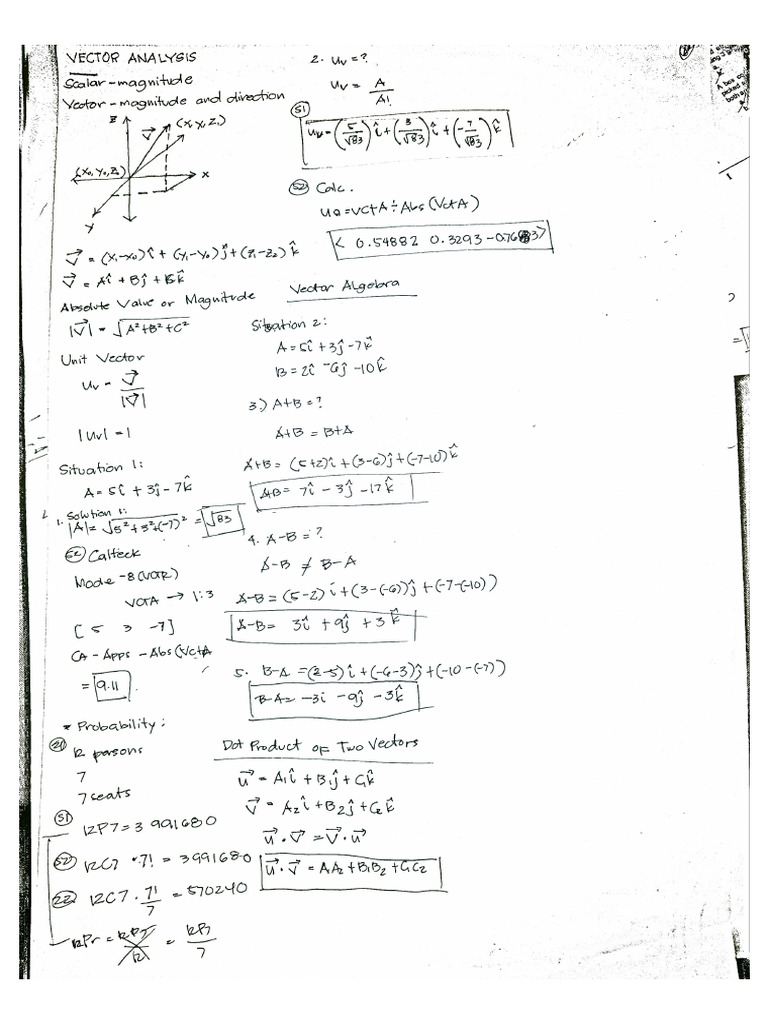 VECTOR ANALYSIS
Scalar - magnitude
Vector - magnitude and direction
z
(x₁,y₁,z₁)
v⃗
(x₀,y₀,z₀)
x
y
v⃗ = (x₁-x₀)î + (y₁-y₀)ĵ + (z₁-z₀)k̂
v⃗ = Aî + Bĵ + k̂
Absolute Value or Magnitude
|v⃗| = √A²+B²+C²
Unit Vector
Uv = v⃗/|v⃗|
|Uv| = 1
Situation 1:
A = 5î + 3ĵ - 7k̂
1. Solution 1:
|A| = √5²+3²+(-7)² = √83
S2 Caltech
Mode - 8 (VCTR)
VCTA → 1:3
[ 5 3 -7]
CA - Apps - Abs(VctA
= 9.11
* Probability:
21 12 persons
7
7 seats
S1 12P7 = 3 991680
S2 12C7 · 7! = 3991680
22 12C7 · 7!/7 = 570240
12Pr = 12P7/12 = 12P7/7
2. Uv = ?
Uv = A/A!
S1
Uv = (5/√83)î + (3/√83)î + (-7/√83)k̂
S2 Calc.
UA = VCTA ÷ Abs(VctA)
< 0.54882 0.3293 -0.7683>
Vector Algebra
Situation 2:
A = 5î + 3ĵ - 7k̂
B = 2î - 6ĵ - 10k̂
3.) A+B = ?
A+B = B+A
A+B = (5+2)î + (3-6)ĵ + (-7-10)k̂
A+B = 7î - 3ĵ - 17k̂
4. A-B = ?
A-B ≠ B-A
A-B = (5-2)î + (3-(-6))ĵ + (-7-(-10))
A-B = 3î + 9ĵ + 3k̂
5. B-A = (2-5)î + (-6-3)ĵ + (-10-(-7))
B-A = -3î - 9ĵ - 3k̂
Dot Product of Two Vectors
u⃗ = A₁î + B₁ĵ + C₁k̂
v⃗ = A₂î + B₂ĵ + C₂k̂
u⃗ · v⃗ = v⃗ · u⃗
u⃗ · v⃗ = AA₂ + B₁B₂ + C₁C₂